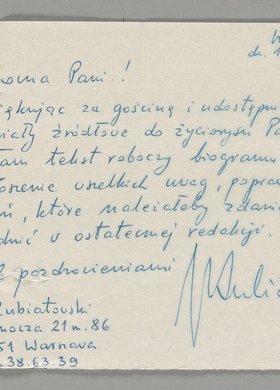 dn. 1
nowna Pani!
iękując za gościnę i udostępn
iały źródłowe do życiorysu Pa
łam tekst roboczy biogramu
łoszenie wszelkich uwag, popra
ń, które należałoby zdani
dnić w ostatecznej redakcji.
Z pozdrowieniami
Kubiatowski
nocza 21 m. 86
51 Warszawa
.38.63.39